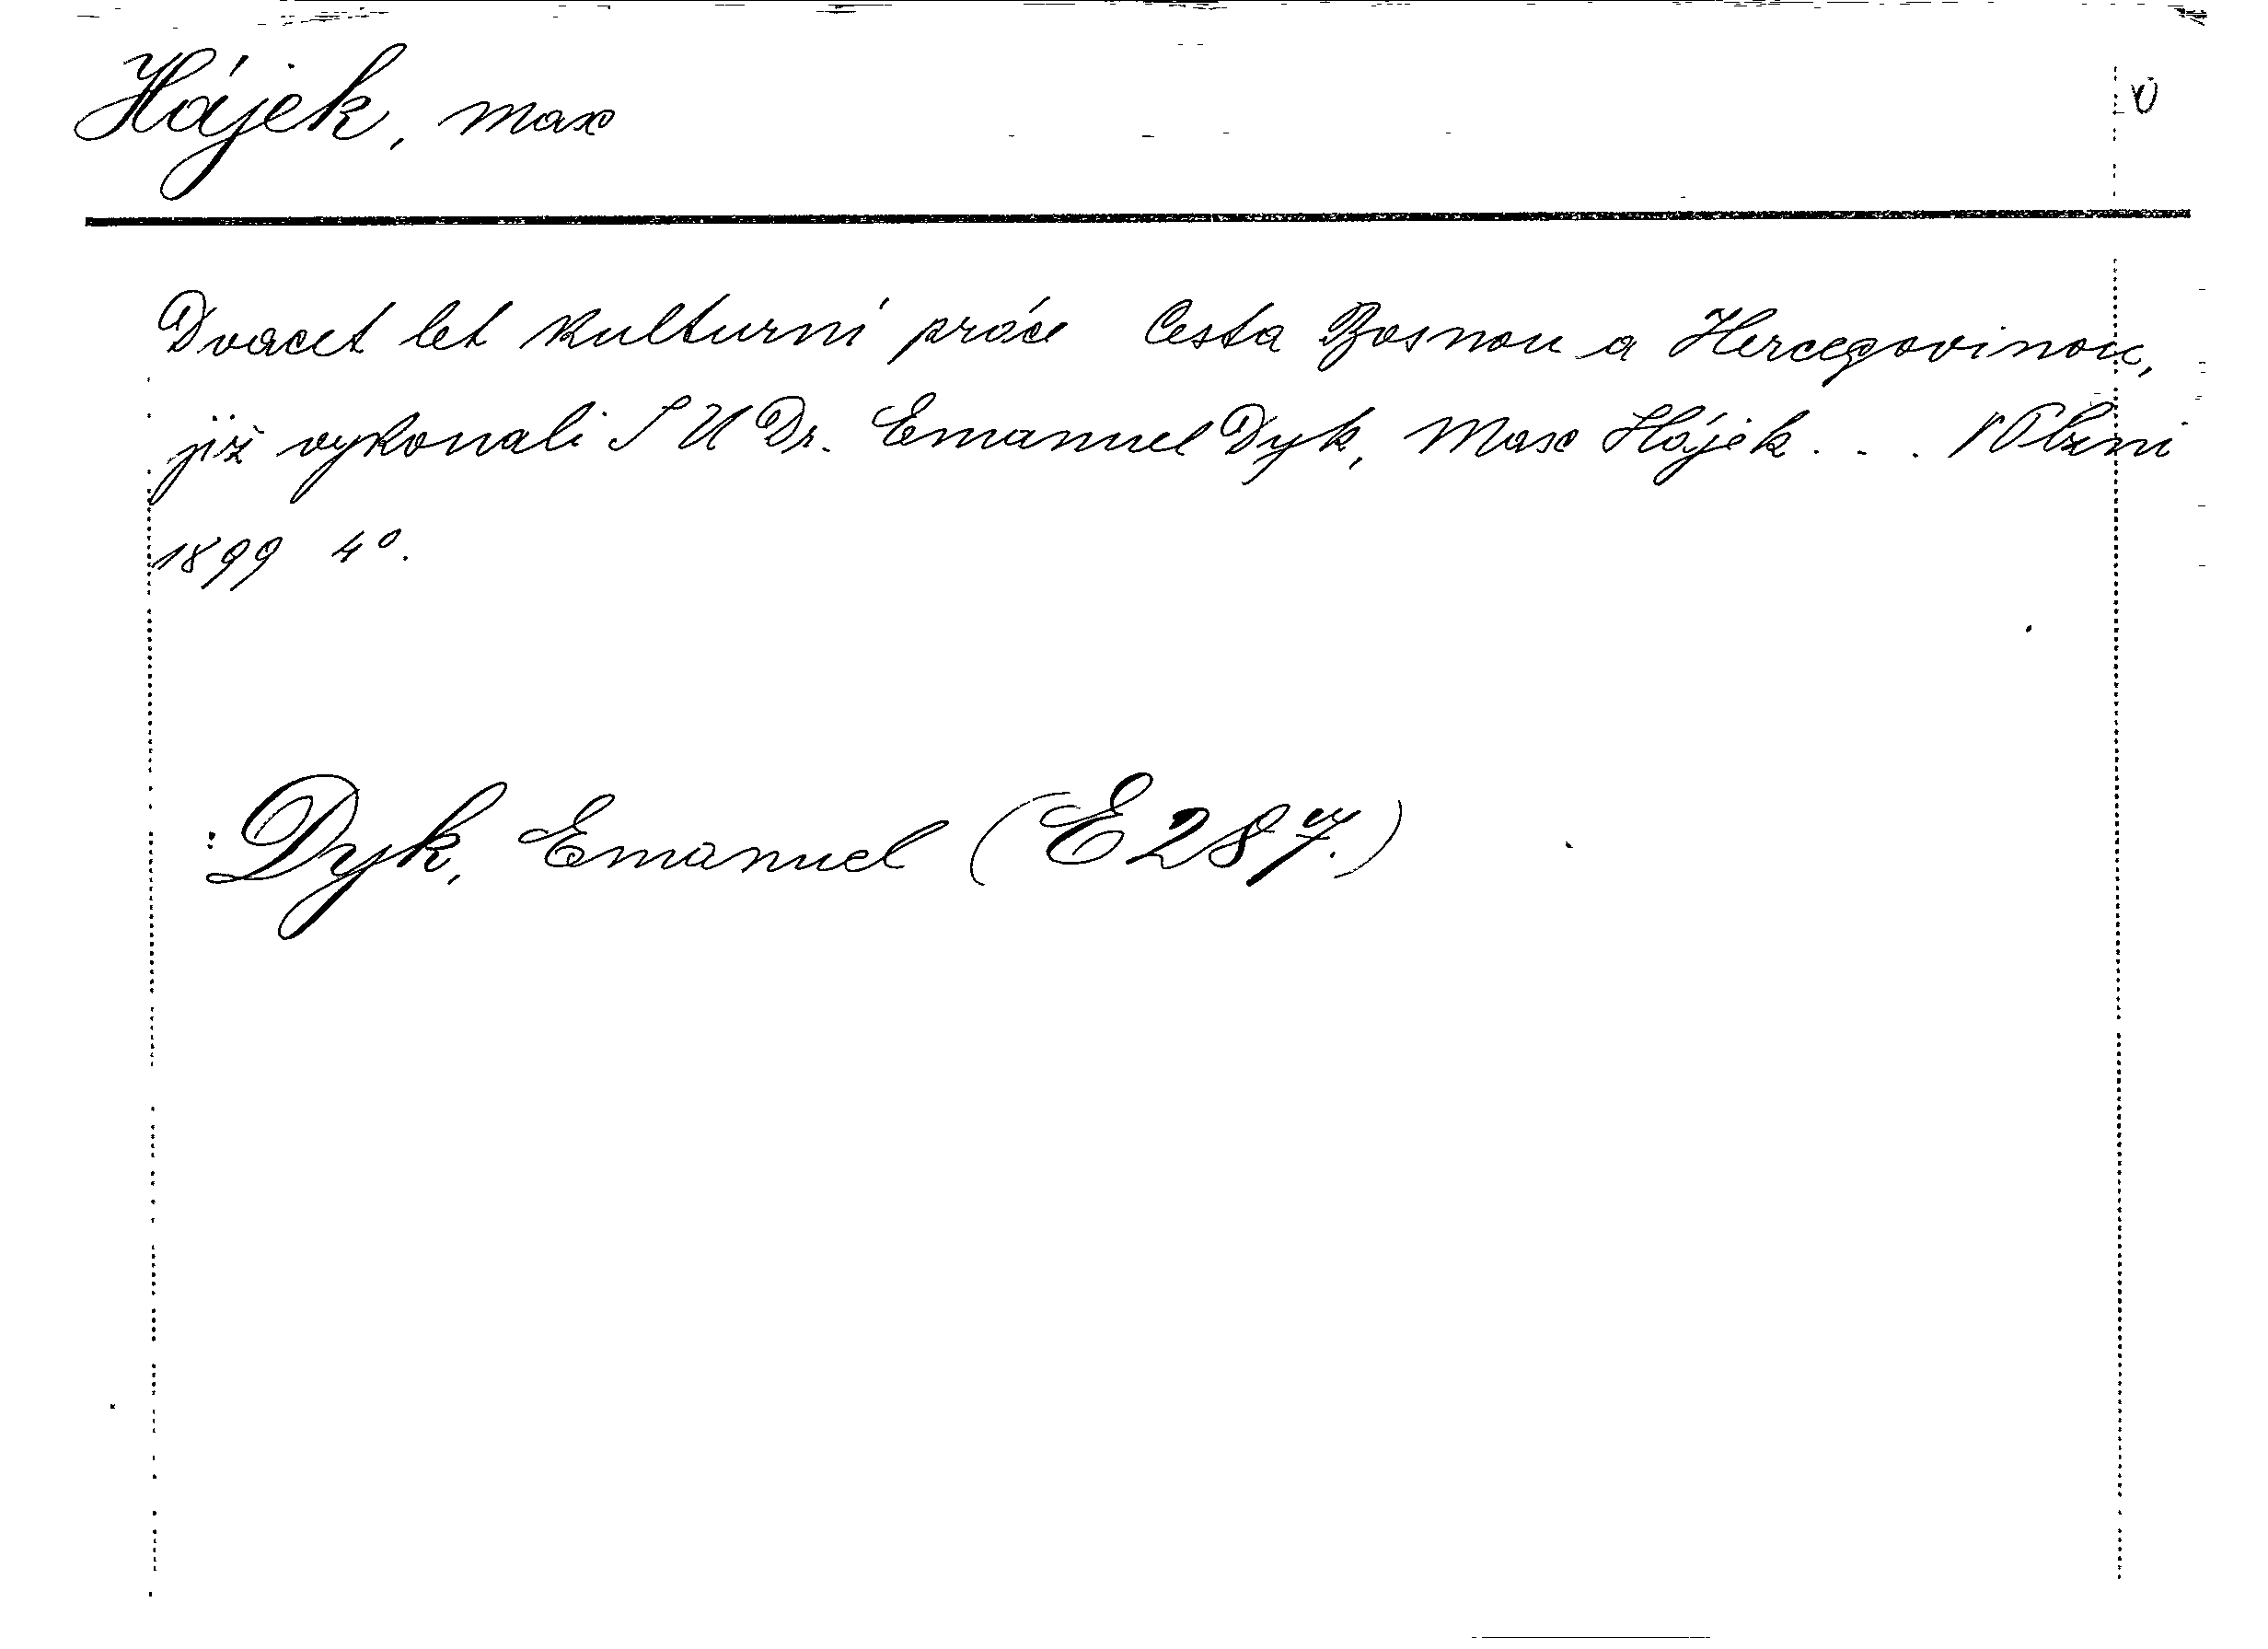 Hájek, Max
Dvacet let kulturní práce Cesta Bosnou a Hercegovinou,
již vykonali JUDr. Emanuel Dyk, Max Hájek . . . V Plzni
1899 4°.
: Dyk, Emanuel (E 287.)